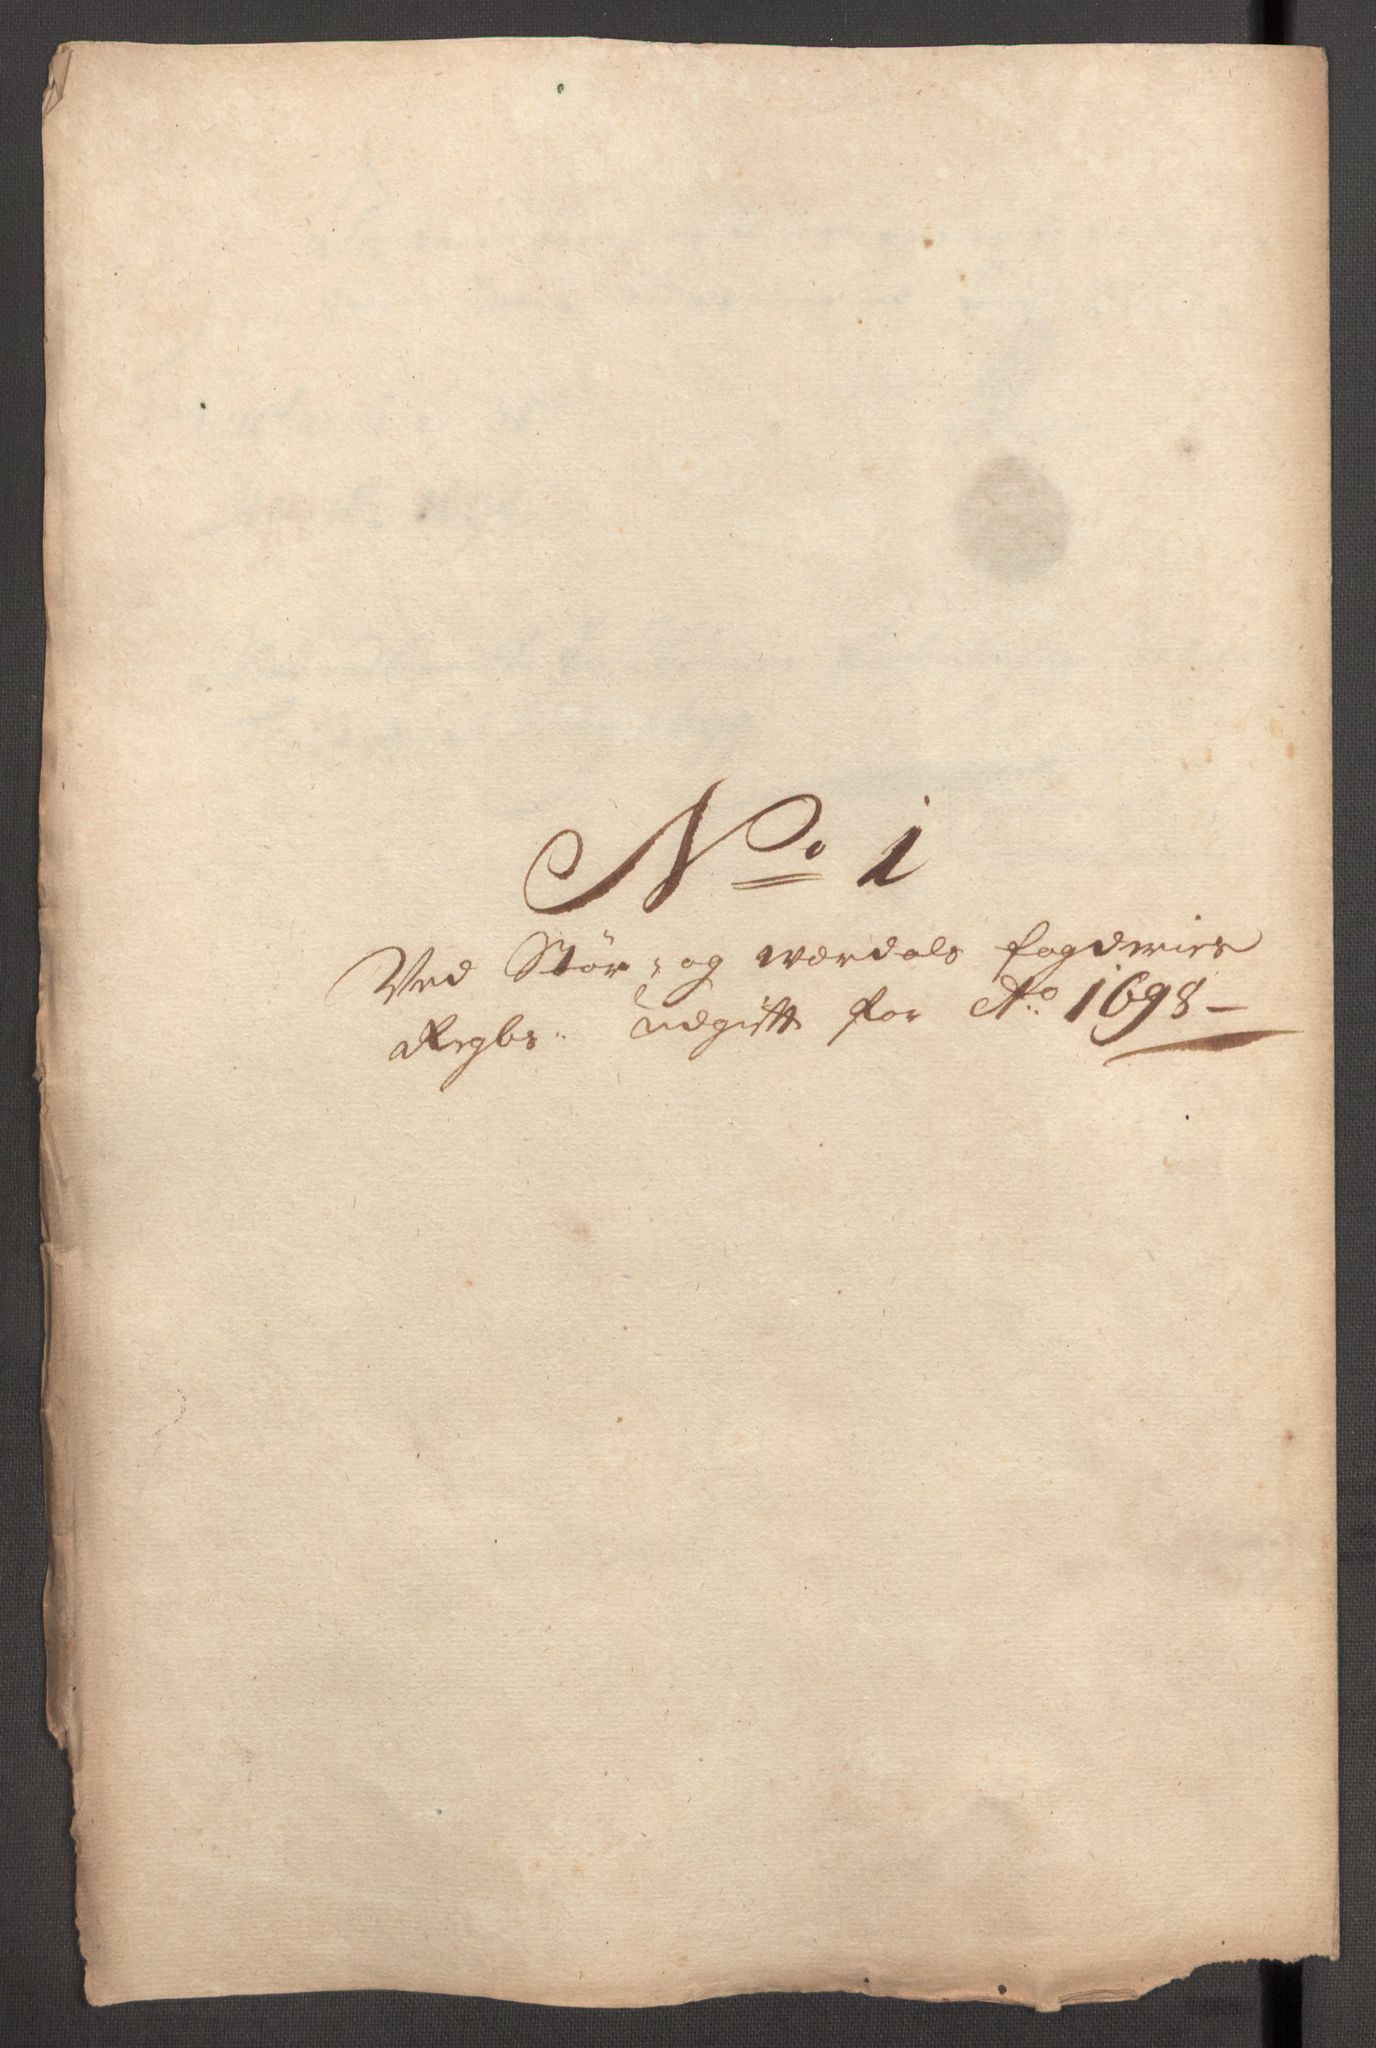 No. 1
Ved Stör- og Værdals fogderies
Regbs: Udgifft for Ao. 1698 –